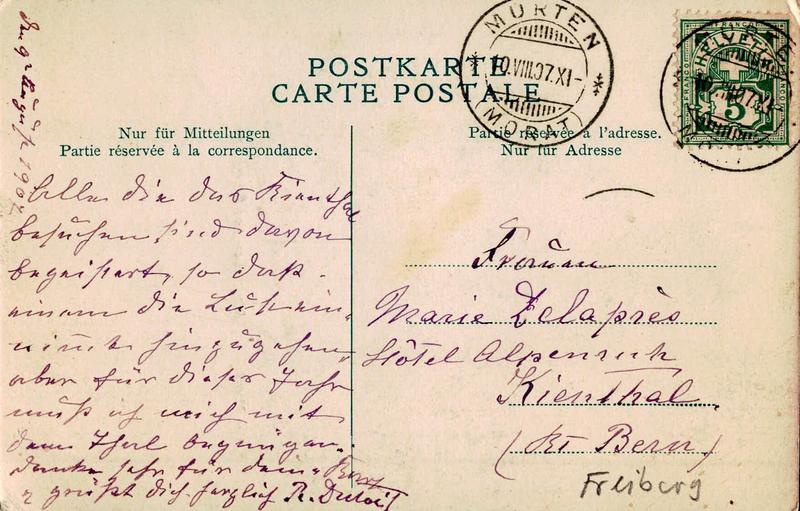 POSTKARTE
CARTE POSTALE
Nur für Mitteilungen
Partie réservée à la correspondance.
Partie réservée à l'adresse.
Nur für Adresse
MURTEN
10.VIII.07.XI-
(MORAT)
FRANCO
HELVETIA
5
den 9 August 1907
Alle die das Kienthal
besuchen sind davon
begeistert, so daß
einem die Lust ein-
hinzugehen
aber für dieses Jahr
muß ich mich mit
dem Thal begnügen.
Danke sehr für dein
& grüßt dich herzlich R. Dutoit
Marie Delaprès
Hôtel Alpenruh
Kienthal
(Kt Bern)
Freiberg